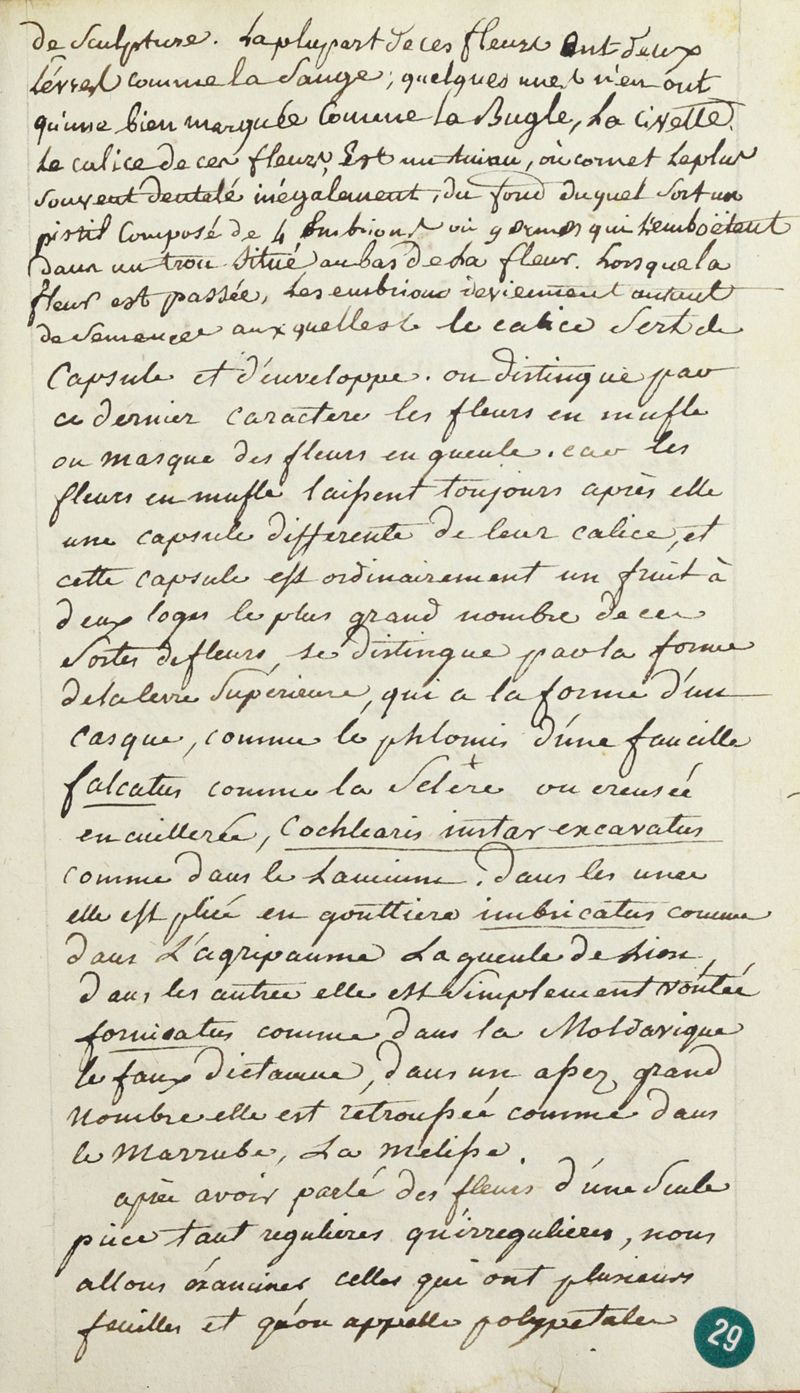 de sculpture. La plupart de ces fleurs ont deux
lévres comme la Sauge; quelques unes n'en ont
qu'une bien marquée Comme la Bugle, La civette.
Le calice de ces fleurs, Est un tuiau, où cornet le plus
souvent dentelé inégalement, du fond duquel sort un
pistil Composé de 4 Embrions où germes qui s'emboëtent
dans un trou Situé au bas de La fleur. Lorsque la
fleur est passée, Les embrions deviennent autant
de Semences auxquelles le calice Sert de
Capsule et d'enveloppe. on distingue par
ce dernier caractere les fleurs en mufle
ou masque des fleurs en gueule. car les
fleurs en mufle laissent toujours après elle
une capsule differente de leur calice, et
cette capsule est ordinairement un fruit à
deux loges le plus grand nombre de ces
Sortes de fleurs, se distingue par la forme
de la levre Supérieure, qui a la forme d'un
Casque, comme le phlomis d'une faucille
falcatus comme la Sclére ou creusée
en cuillerée, Cochlearis instar excavatus
comme dans le Lamium. dans les unes
elle est pliée en gouttiere imbricatus comme
dans L'agripaume La gueule de Lion,
dans les autres elle est Simplement voûtée
fornicatus comme dans la Moldavique
le faux dictamne, dans un assez grand
Nombre elle est retroussée comme dans
le Marrube, La melisse.
après avoir parlé des fleurs d'une Seule
piece tant regulieres qu'irregulieres, nous
allons éxaminer celles qui ont plusieurs
feuilles et qu'on appelle polypetales
29